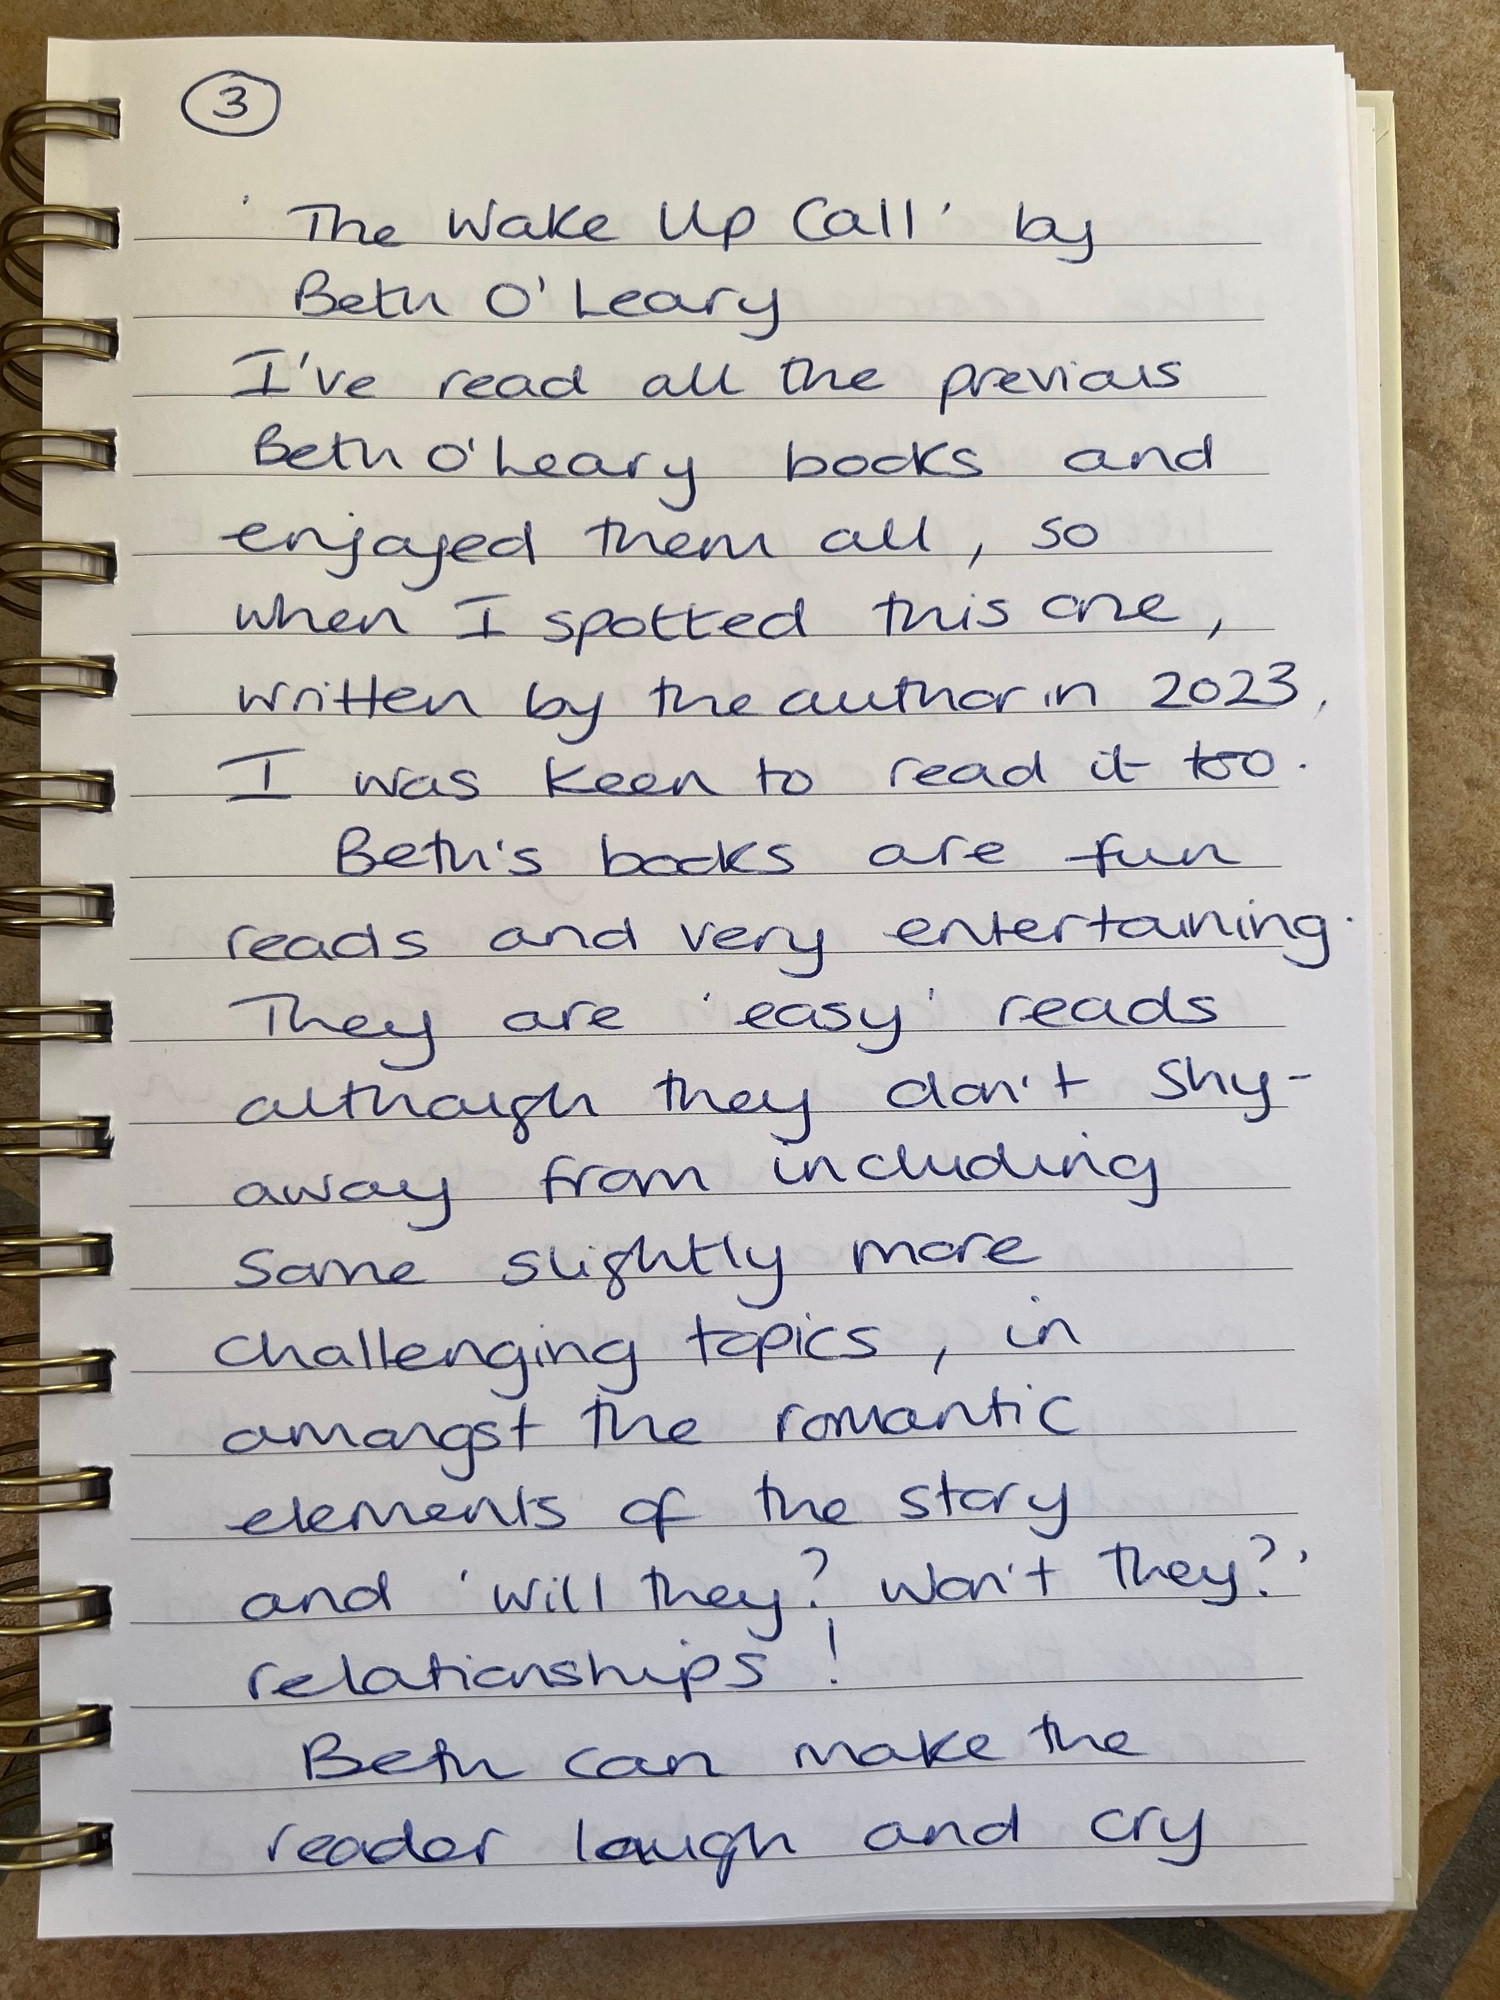 3
'The Wake Up Call' by
Beth O'Leary
I've read all the previous
Beth O'Leary books and
enjoyed them all, so
when I spotted this one,
written by the author in 2023,
I was keen to read it too.
Beth's books are fun
reads and very entertaining.
They are 'easy' reads
although they don't shy-
away from including
some slightly more
challenging topics, in
amongst the romantic
elements of the story
and 'will they? Won't they?'
relationships!
Beth can make the
reader laugh and cry